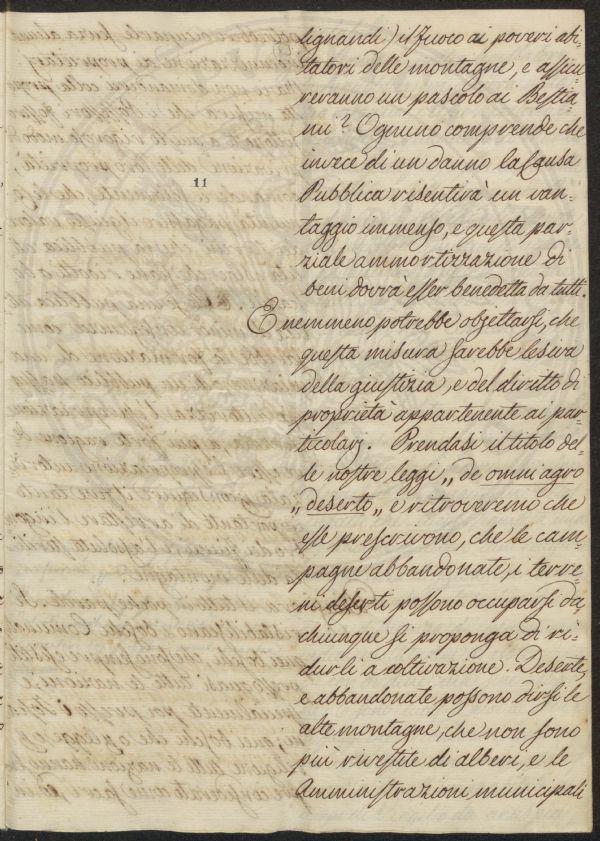 11
lignandi) il fuoco ai poveri abi-
tatori delle montagne, e assicu-
reranno un pascolo ai Bestia-
mi? Ognuno comprende che
invece di un danno la Causa
Pubblica risentirà un van-
taggio immenso, e questa par-
ziale ammortizzazione di
beni dovrà esser benedetta da tutti.
E nemmeno potrebbe objettarsi, che
questa misura sarebbe lesiva
della giustizia, e del diritto di
proprietà appartenente ai par-
ticolarj. Prendasi il titolo del-
le nostre leggi „ de omni agro
„ deserto „ e ritroveremo che
esse prescrivono, che le cam-
pagne abbandonate, i terre-
ni deserti possono occuparsi da
chiunque si proponga di ri-
durli a coltivazione. Deserte,
e abbandonate possono dirsi le
alte montagne, che non sono
più rivestite di alberi, e le
Amministrazioni municipali